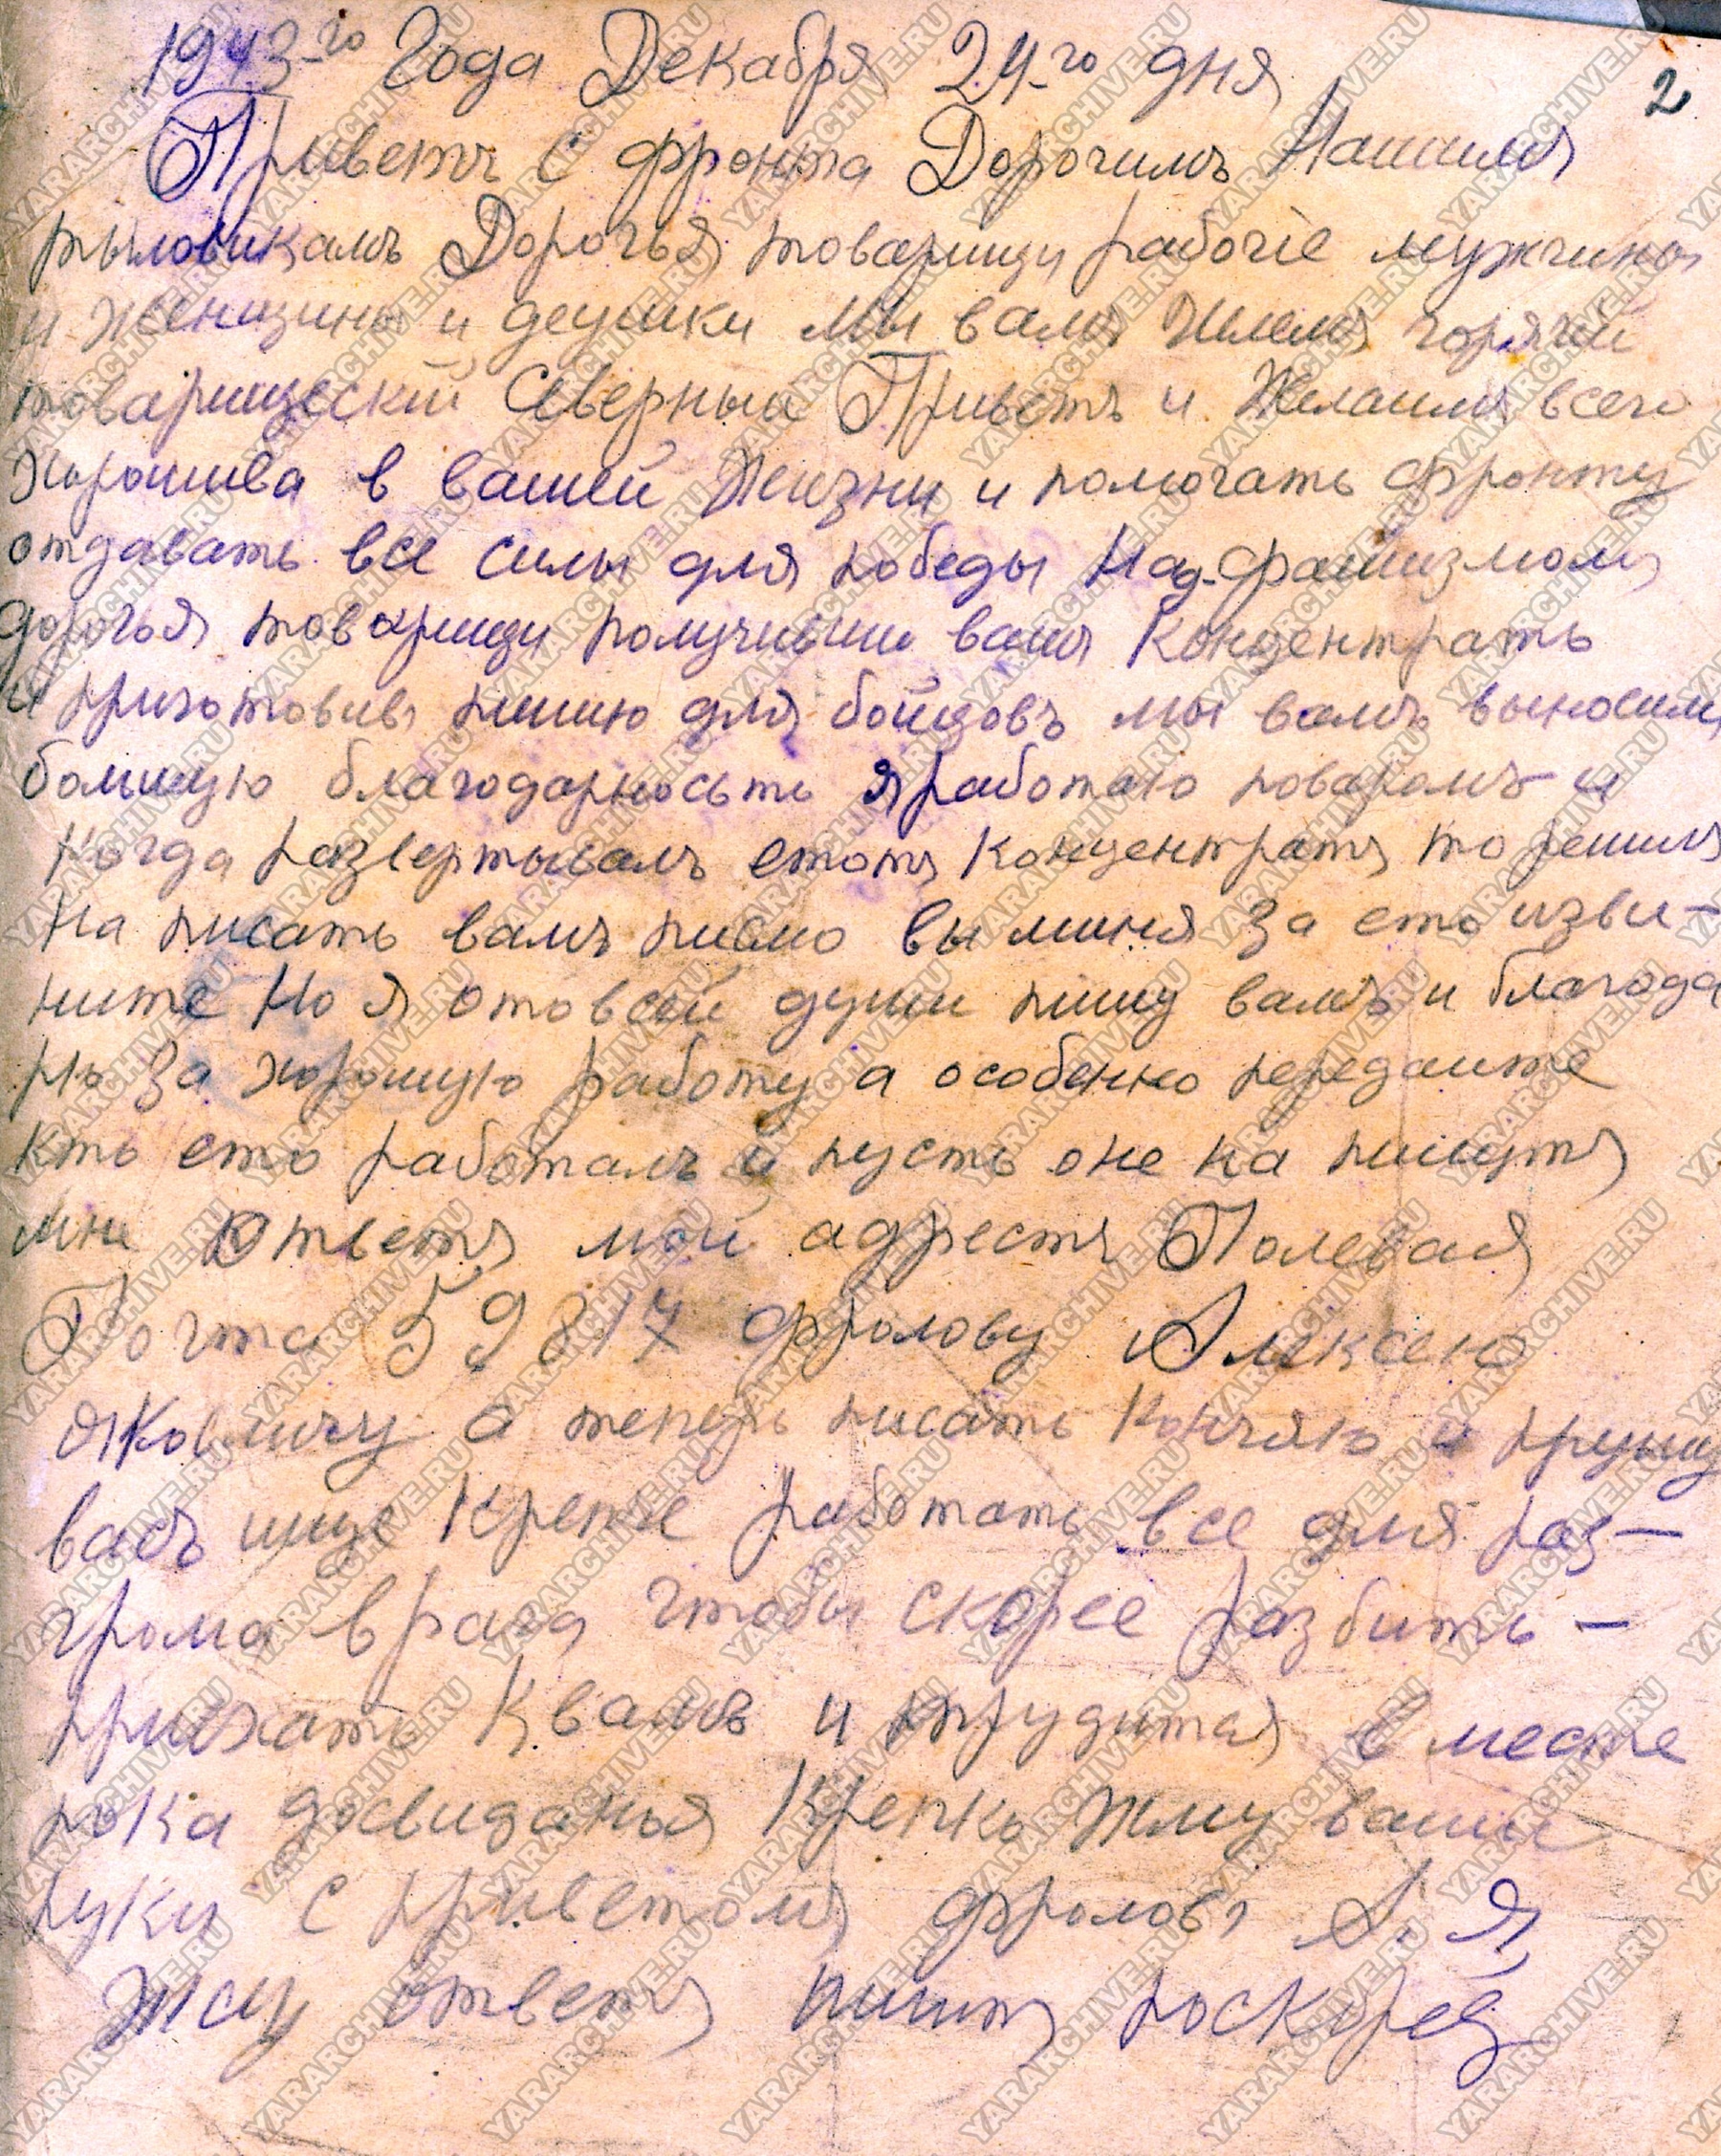 1943-го Года Декабря 24-го дня
2
Приветъ с фронта Дорогимъ Нашимъ
тыловикамъ Дорогья товарищи рабочіе мужчины
и женщины и деушки мы вамъ шлемъ горячий
товарищеский Северный Приветъ и Желаимъ всего
хорошива в вашей Жизни и помогать фронту
отдавать все силы для победы Над-фашизмомъ
дорогья товарищи получивши вашъ Концентратъ
и приготовивъ пишию для бойцовъ мы вамъ выносимъ
большую благодарносьть я работаю поваромъ и
когда развертывалъ етотъ концентратъ то решилъ
на писать вамъ писмо вы миня за ето изви-
ните но я отовсей души пишу вамъ и благода
рю за хорошую работу а особенно передаите
кто ето работалъ и пусть оне на пишутъ
мне ответъ мой адрестъ Полевая
Почта 59217 Фролову Алексею
Яковличу а теперь писать кончяю и прушу
васъ ище крепче работать все для раз-
грома врага чтобы скорее разбить -
приехать к вамъ и трудится вместе
пока досвиданья Крепко жму ваши
руки с приветомъ Фроловъ А. Я.
Жду ответъ пишите поскорея